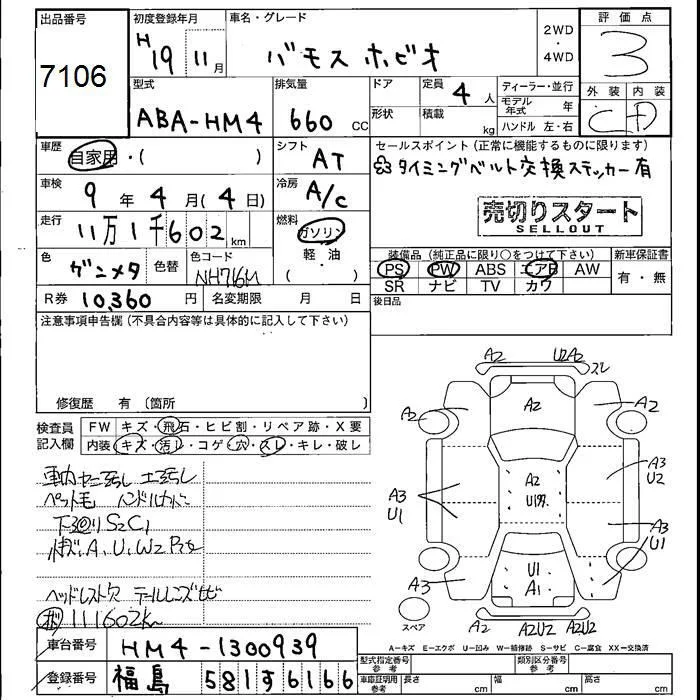 出品番号 初度登録年月 車名・グレード 2WD・4WD 評価点
7106 H19 11月 バモス ホビオ 3
型式 排気量 ドア 定員 4人 ディーラー・並行 外装 内装
ABA-HM4 660 CC 形状 積載 kg モデル年式 年 C D
ハンドル 左・右
車歴 自家用・( ) シフト AT セールスポイント (正常に機能するものに限ります)
タイミングベルト交換ステッカー有
車検 9年 4月 (4日) 冷房 A/C
売切りスタート
SELLOUT
走行 11万1千602km 燃料 ガソリン
軽・油
装備品 (純正品に限り○をつけて下さい) 新車保証書
色 ガンメタ 色替 色コード NH716M
PS PW ABS エアB AW 有・無
SR ナビ TV カワ
R券 10,360円 名変期限 月 日 後日品
注意事項申告欄 (不具合内容等は具体的に記入して下さい)
修復歴 有 〔箇所 〕
検査員記入欄 FW キズ・飛石・ヒビ割・リペア跡・X要
内装 キズ・汚れ・コゲ・穴・スレ・キレ・破レ
ペット毛
S2C1
A、U、W2
ヘッドレスト穴 テールレンズヒビ
111602K
A2 U2A2 スレ
A2 A2 A2
A3 U1 A2 A3 U2
A3 U1
A3 U1 A1
スペア A2 A2U2 A2U2
A-キズ E-エクボ U-凹み W-補修跡 S-サビ C-腐食 XX-交換済
車台番号 HM4-1300939
型式指定番号 参考 類別区分番号 参考
登録番号 福島 581す6166
車庫証明用 参考 長さ cm 幅 cm 高さ cm